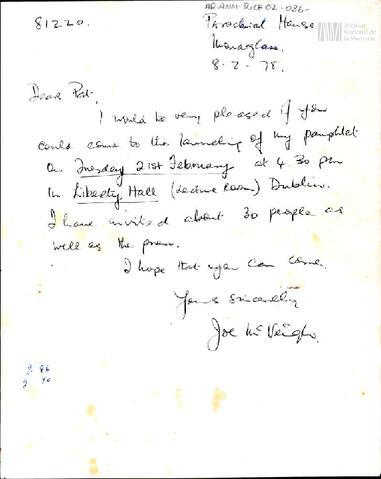 AR.ANM-RICE 02 -086-
Archivo
Nacional de
la Memoria
81220.
Parochial House
Monaghan.
8. 2 - 78.
Dear Pat,
I would be very pleased if you
could come to the launching of my pamphlet
on Tuesday 21st February at 4.30 pm
In Liberty Hall (Lecture Room) Dublin.
I have invited about 30 people as
well as the press.
I hope that you can come.
Yours sincerely
Joe McVeigh.
86
40